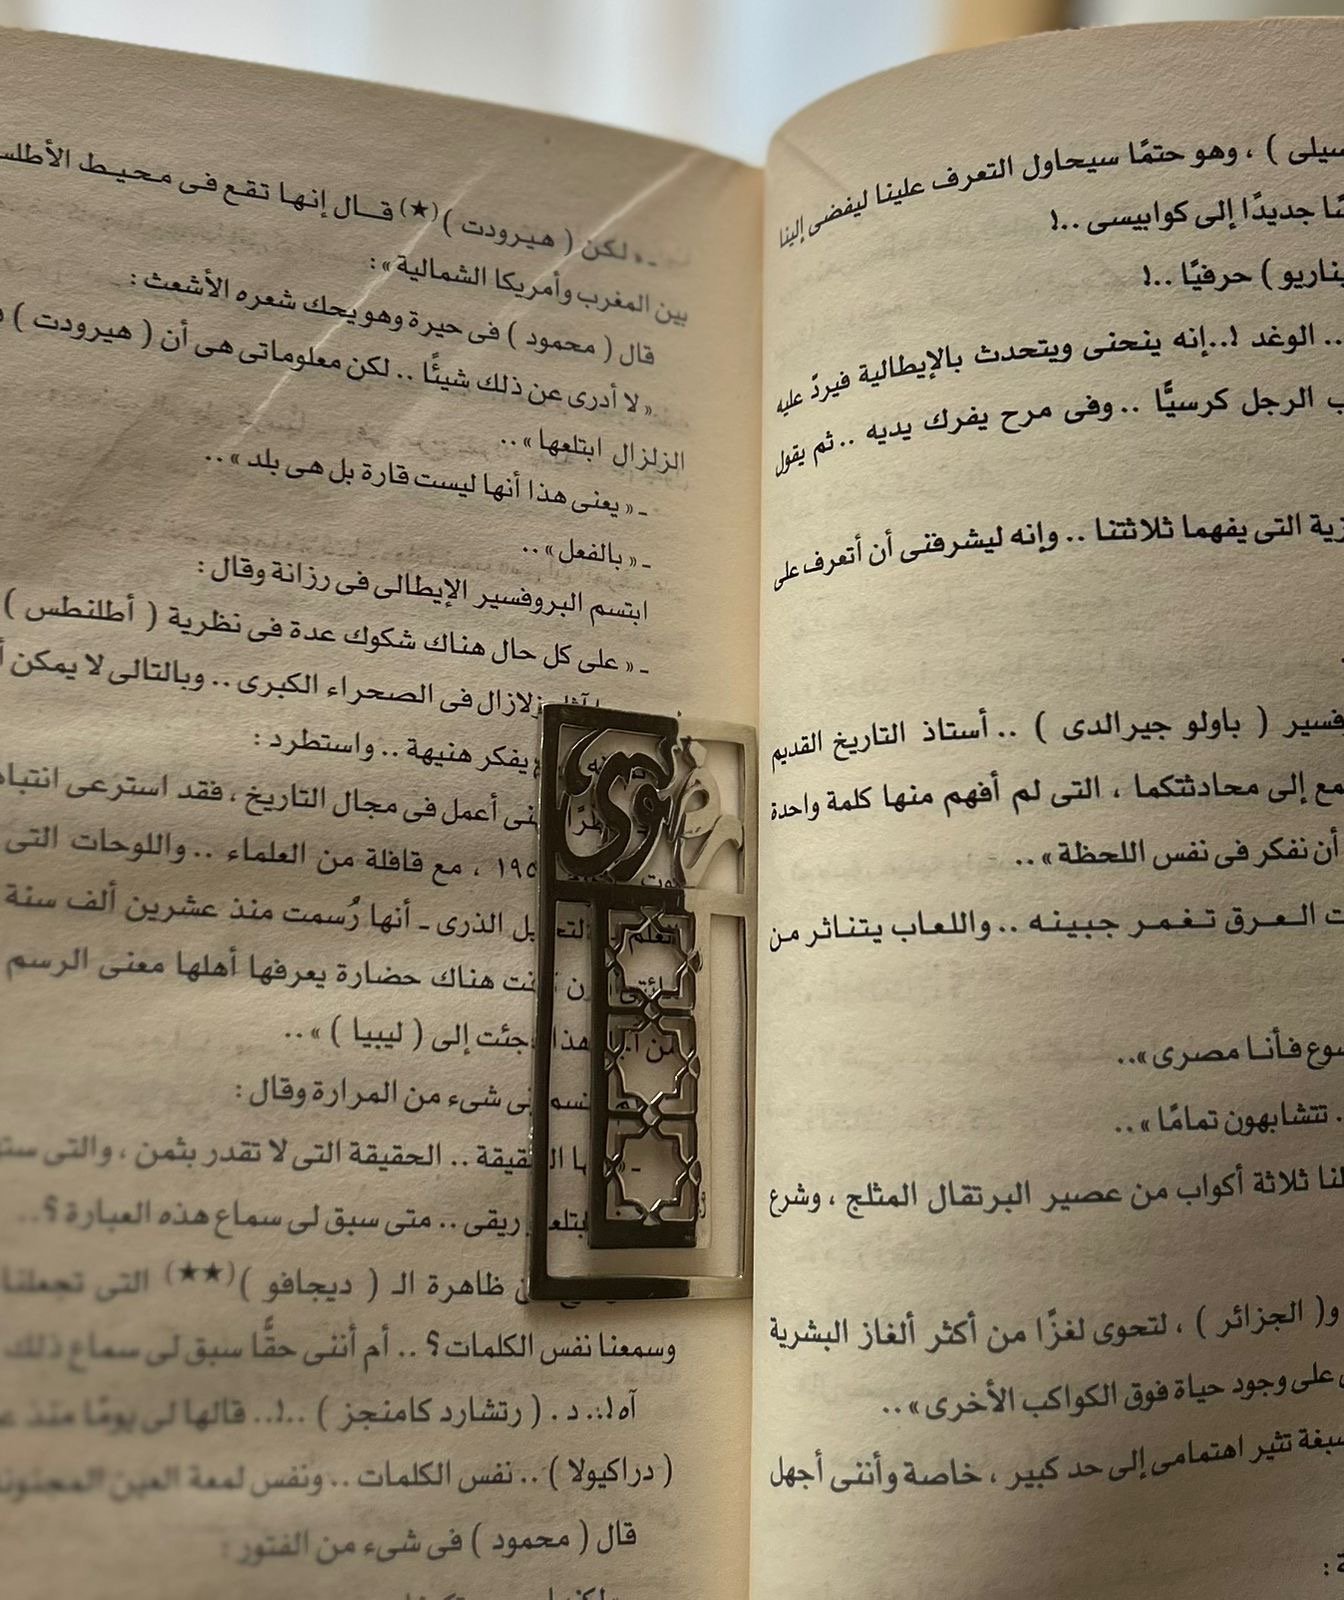 سيلى ) ، وهو حتمًا سيحاول التعرف علينا ليفضى إلينا
جديدًا إلى كوابيسى ..!
يناريو ) حرفيًا ..!
.. الوغد !..إنه ينحنى ويتحدث بالإيطالية فيردّ عليه
ب الرجل كرسيًّا .. وفى مرح يفرك يديه .. ثم يقول
زية التى يفهما ثلاثتنا .. وإنه ليشرفنى أن أتعرف على
فسير ( باولو جيرالدى ) .. أستاذ التاريخ القديم
مع إلى محادثتكما ، التى لم أفهم منها كلمة واحدة
أن نفكر فى نفس اللحظة » ..
ت الـعـرق تـغـمـر جـبيـنـه .. واللعاب يتناثر من
سوع فأنـا مصرى »..
. تتشابهون تمامًا » ..
لنا ثلاثة أكواب من عصير البرتقال المثلج ، وشرع
و( الجزائر ) ، لتحوى لغزًا من أكثر ألغاز البشرية
على وجود حياة فوق الكواكب الأخرى » ..
تثير اهتمامى إلى حد كبير ، خاصة وأننى أجهل
ة :
ـ « لكن ( هيرودت )(★) قـال إنهـا تقـع فى محيـط الأطلسـ
بين المغرب وأمريكا الشمالية » :
قال ( محمود ) فى حيرة وهو يحك شعره الأشعث :
« لا أدرى عن ذلك شيئًا .. لكن معلوماتى هى أن ( هيرودت )
الزلزال ابتلعها » ..
ـ « يعنى هذا أنها ليست قارة بل هى بلد » ..
ـ « بالفعل » ..
ابتسم البروفسير الإيطالى فى رزانة وقال :
ـ « على كل حال هناك شكوك عدة فى نظرية ( أطلنطس )
زلازال فى الصحراء الكبرى .. وبالتالى لا يمكن
يفكر هنيهة .. واستطرد :
أعمل فى مجال التاريخ ، فقد استرعى انتباه
١٩٥ ، مع قافلة من العلماء .. واللوحات التى
الذرى ـ أنها رُسمت منذ عشرين ألف سنة
هناك حضارة يعرفها أهلها معنى الرسم
جئت إلى ( ليبيا ) » ..
شىء من المرارة وقال :
.. الحقيقة التى لا تقدر بثمن ، والتى ستـ
ريقى .. متى سبق لى سماع هذه العبارة ؟..
ظاهرة الـ ( ديجافو )(★★) التى تجعلنا
وسمعنا نفس الكلمات ؟ .. أم أننى حقًّا سبق لى سماع ذلك
آه !.. د . ( رتشارد كامنجز ) ..!.. قالها لى يومًا منذ
( دراكيولا ) .. نفس الكلمات .. ونفس لمعة العين المجنونة
قال ( محمود ) فى شىء من الفتور :